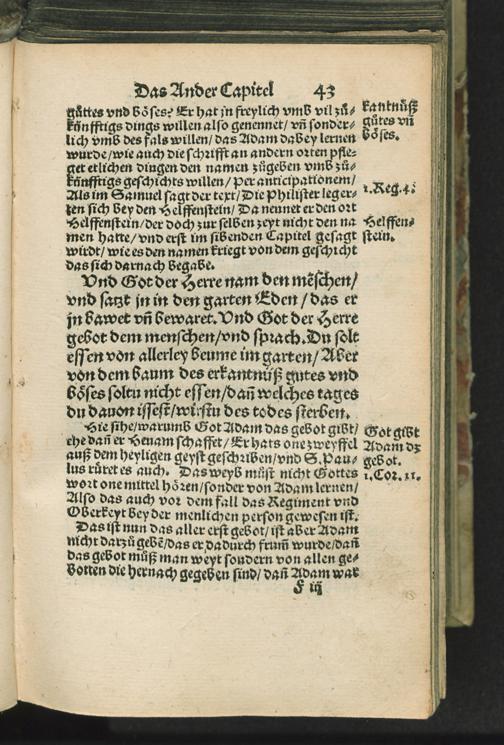 Das Ander Capitel 43
gůttes vnd bőses? Er hat jn freylich vmb vil zů-
kűnfftigs dings willen also genennet/ vn̄ sonder-
lich vmb des fals willen/ das Adam dabey lernen
wurde/ wie auch die schrifft an andern orten pfle-
get etlichen dingen den namen zůgeben vmb zů-
kűnfftigs geschichts willen/ Per anticipationem/
Als im Samuel sagt der text/ Die Philister leger-
ten sich bey den Helffenstein/ Da nennet er den ort
Helffenstein/ der doch zur selben zeyt nicht den na
men hatte/ vnd erst im sibenden Capitel gesagt
wirdt/ wie es den namen kriegt von dem geschicht
das sich darnach begabe.
Vnd Got der Herre nam den mēschen/
vnd satzt jn in den garten Eden/ das er
jn bawet vn̄ bewaret. Vnd Got der Herre
gebot dem menschen/ vnd sprach. Du solt
essen von allerley beume im garten/ Aber
von dem baum des erkantnűß gutes vnd
bőses soltu nicht essen/ dan̄ welches tages
du dauon issest/ wirstu des todes sterben.
Hie sihe/ warumb Got Adam das gebot gibt/
ehe dan̄ er Heuam schaffet/ Er hats one zweyffel
auß dem heyligen geyst geschriben/ vnd S. Pau-
lus rűret es auch. Das weyb műst nicht Gottes
wort one mittel hőren/ sonder von Adam lernen/
Also das auch vor dem fall das Regiment vnd
Oberkeyt bey der menlichen person gewesen ist.
Das ist nun das aller erst gebot/ ist aber Adam
nicht darzů gebē/ das er dadurch frum̄ wurde/ dan̄
das gebot můß man weyt sondern von allen ge-
botten die hernach gegeben sind/ dan̄ Adam war
F iij
kantnűß
gůtes vn̄
bőses.
1. Reg. 4.
Helffen-
stein.
Got gibt
Adam dz
gebot.
1. Cor. 11.